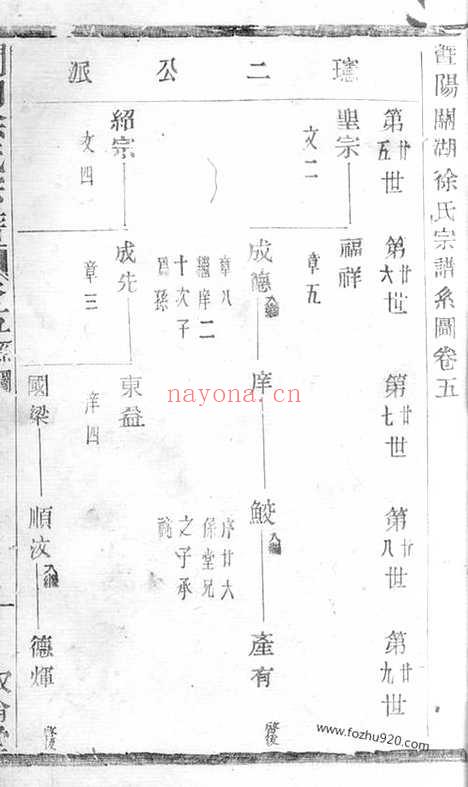 暨陽關湖徐氏宗譜系圖卷五
第廿五世
第廿六世
第廿七世
第廿八世
第廿九世
二公派
聖宗
文二
福祥
章五
成德
入繼
章八
繼庠二
十次子
爲孫
庠
鮫
入繼
序廿六
係堂兄
之子承
祧
產有
啓後
紹宗
文四
成先
章三
東益
庠四
國梁
順汶
入繼
德輝
啓後
nayona.cn
www.fozhu920.com